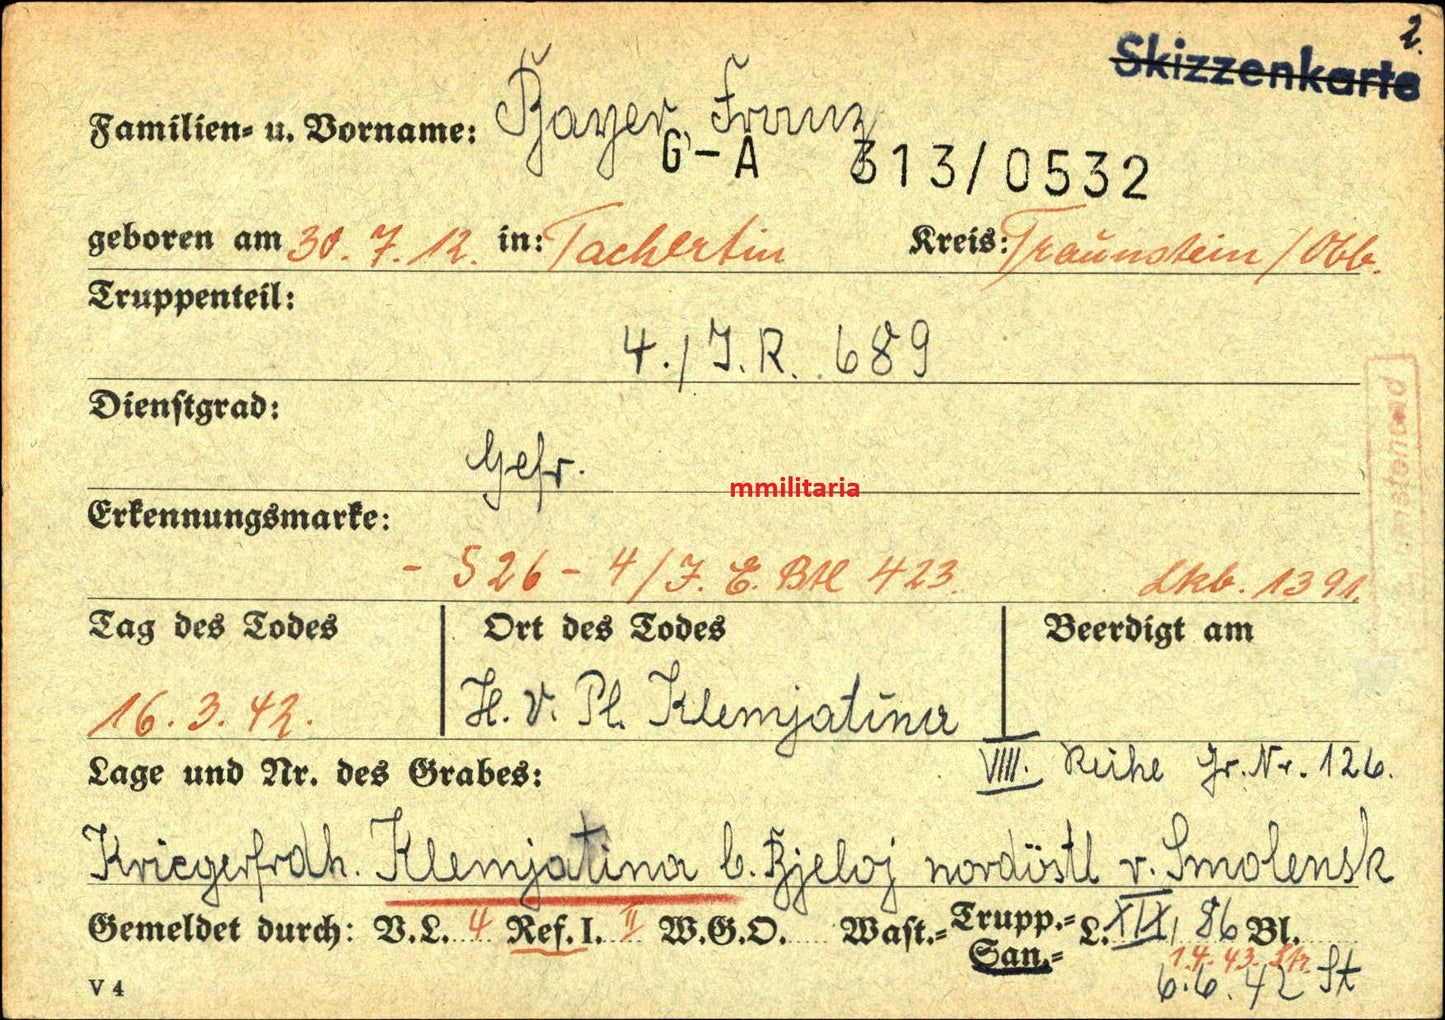 2.
Skizzenkarte
Familien- u. Vorname: Bayer, Franz
G-A 313/0532
geboren am 30. 7. 12. in: Tachertin Kreis: Traunstein / Obb.
Truppenteil:
4./J.R. 689
Dienstgrad:
Gefr.
mmilitaria
Erkennungsmarke:
- 526 - 4/J. E. Btl 423. Lkb. 1391.
Tag des Todes Ort des Todes Beerdigt am
16. 3. 42. H. V. Pl. Klemjatina
Lage und Nr. des Grabes: VIIII. Reihe Gr. Nr. 126.
Kriegerfrdh. Klemjatina b. Bjeloj nordöstl v. Smolensk
Gemeldet durch: V.L. 4 Ref. I. II W.G.O. Wast.- Trupp.- San.- L. XIX, 86 Bl.
1.4.43.
V 4 6.6.42 St